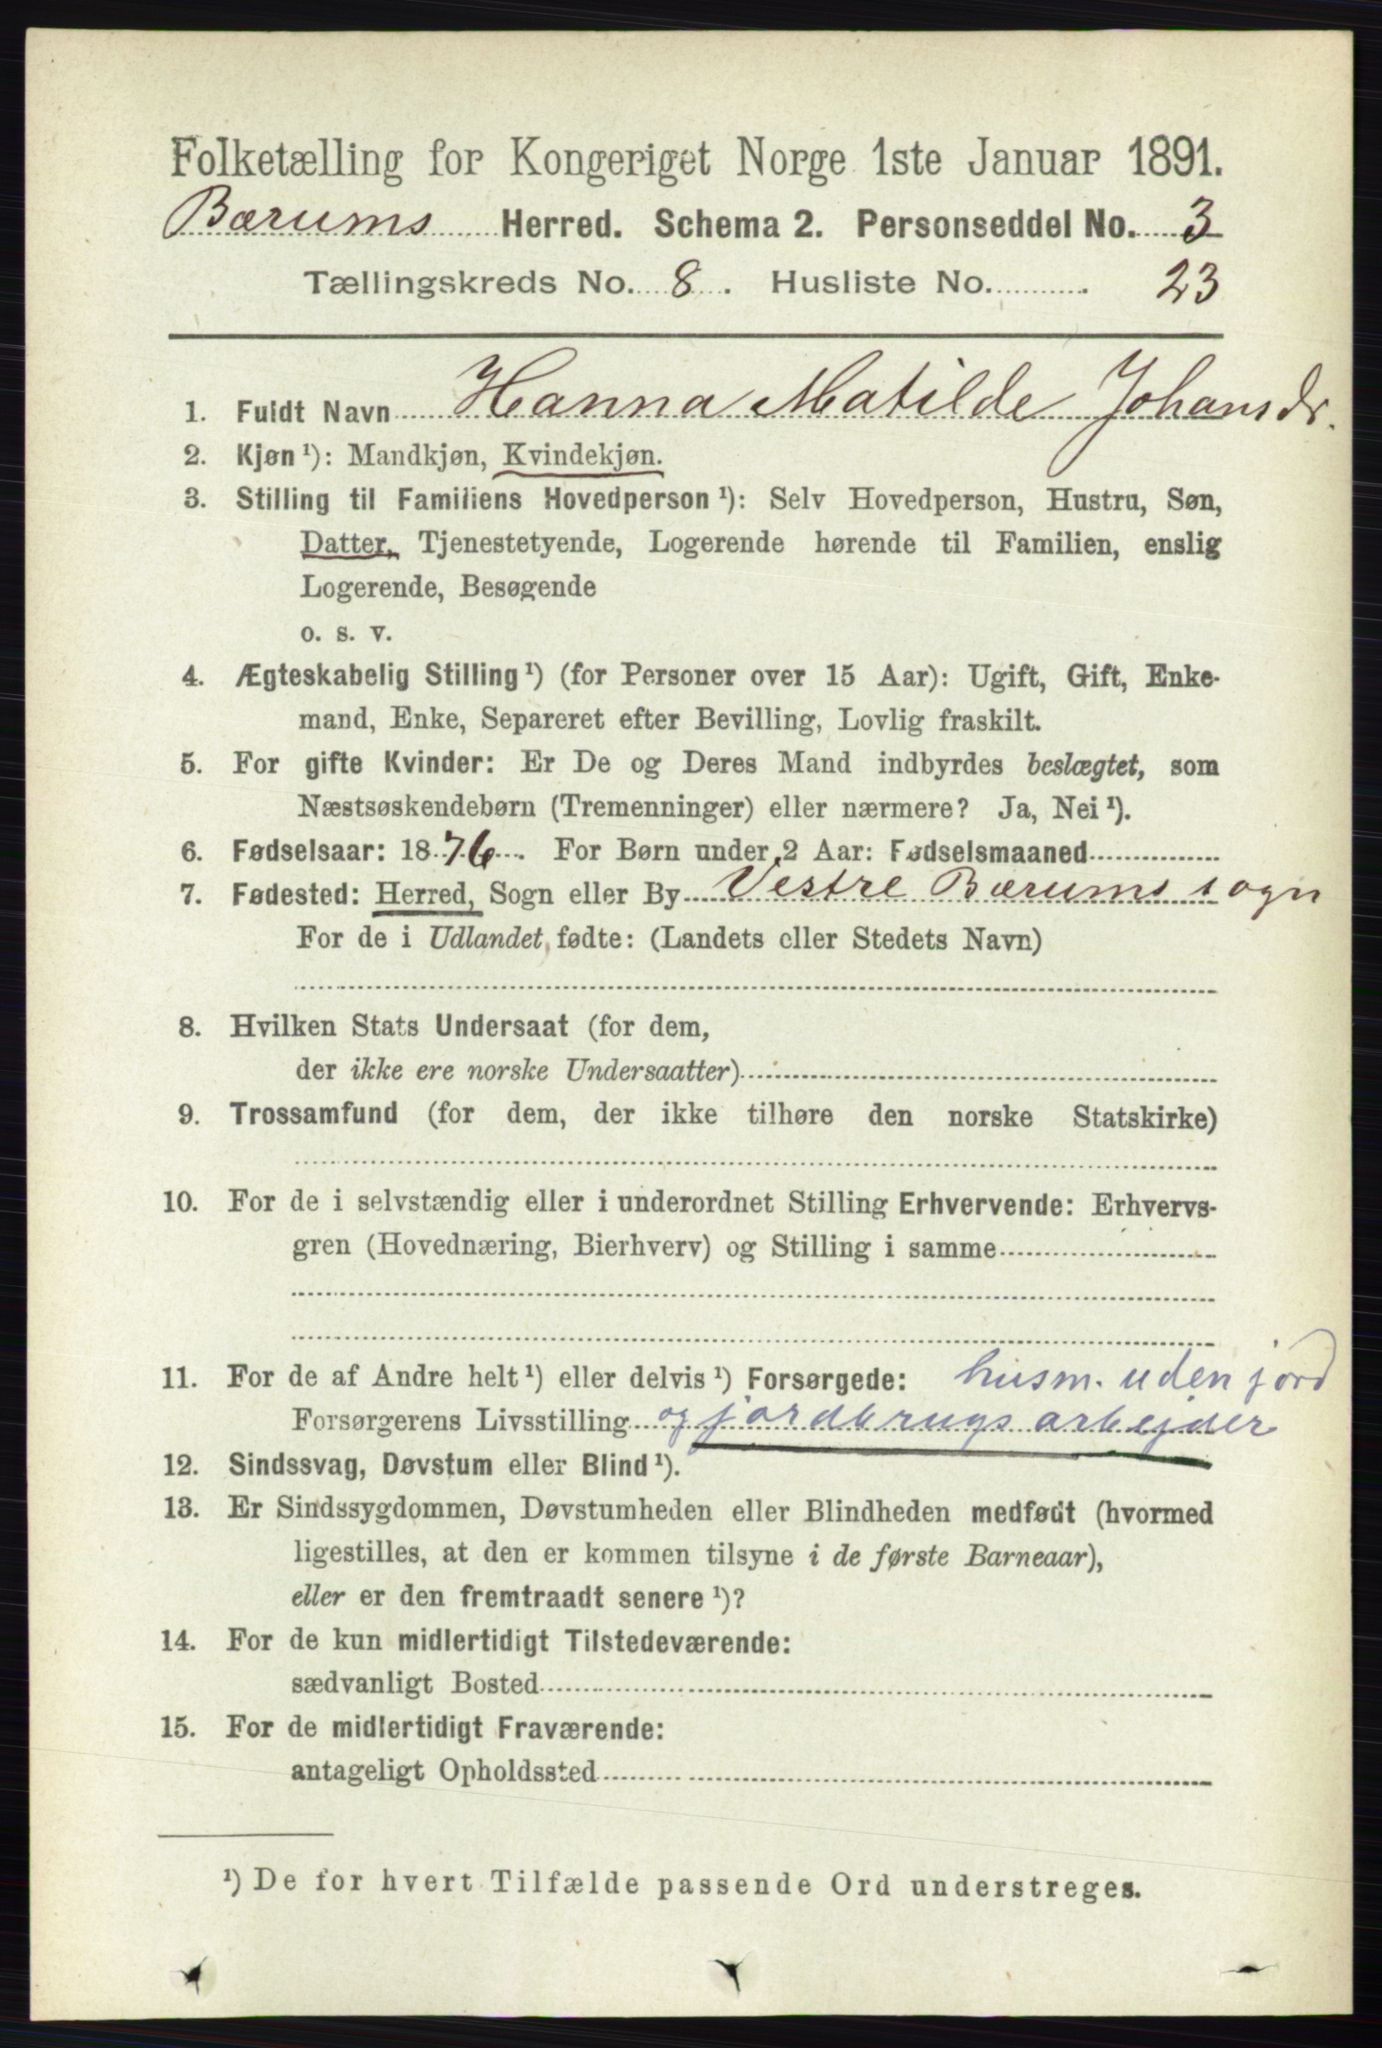 Folketælling for Kongeriget Norge 1ste Januar 1891.
Bærums Herred. Schema 2. Personseddel No. 3
Tællingskreds No. 8. Husliste No. 23
1. Fuldt Navn Hanna Matilde Johansdr.
2. Kjøn ¹): Mandkjøn, Kvindekjøn.
3. Stilling til Familiens Hovedperson ¹): Selv Hovedperson, Hustru, Søn,
Datter, Tjenestetyende, Logerende hørende til Familien, enslig
Logerende, Besøgende
o. s. v.
4. Ægteskabelig Stilling ¹) (for Personer over 15 Aar): Ugift, Gift, Enke-
mand, Enke, Separeret efter Bevilling, Lovlig fraskilt.
5. For gifte Kvinder: Er De og Deres Mand indbyrdes beslægtet, som
Næstsøskendebørn (Tremenninger) eller nærmere? Ja, Nei ¹).
6. Fødselsaar: 1876. For Børn under 2 Aar: Fødselsmaaned
7. Fødested: Herred, Sogn eller By Vestre Bærums sogn
For de i Udlandet fødte: (Landets eller Stedets Navn)
8. Hvilken Stats Undersaat (for dem,
der ikke ere norske Undersaatter)
9. Trossamfund (for dem, der ikke tilhøre den norske Statskirke)
10. For de i selvstændig eller i underordnet Stilling Erhvervende: Erhvervs-
gren (Hovednæring, Bierhverv) og Stilling i samme
11. For de af Andre helt ¹) eller delvis ¹) Forsørgede: husm. uden jord
Forsørgerens Livsstilling og jordbrugsarbejder
12. Sindssvag, Døvstum eller Blind ¹).
13. Er Sindssygdommen, Døvstumheden eller Blindheden medfødt (hvormed
ligestilles, at den er kommen tilsyne i de første Barneaar),
eller er den fremtraadt senere ¹)?
14. For de kun midlertidigt Tilstedeværende:
sædvanligt Bosted
15. For de midlertidigt Fraværende:
antageligt Opholdssted
¹) De for hvert Tilfælde passende Ord understreges.